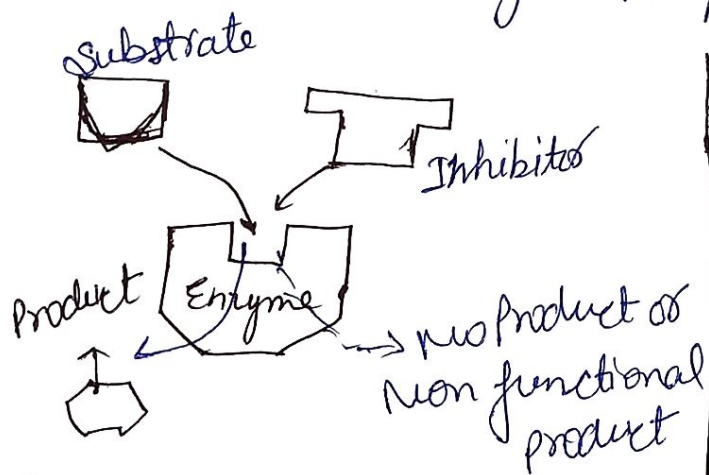 Substrate
Inhibitor
Product
Enzyme
No Product or
Non functional
product